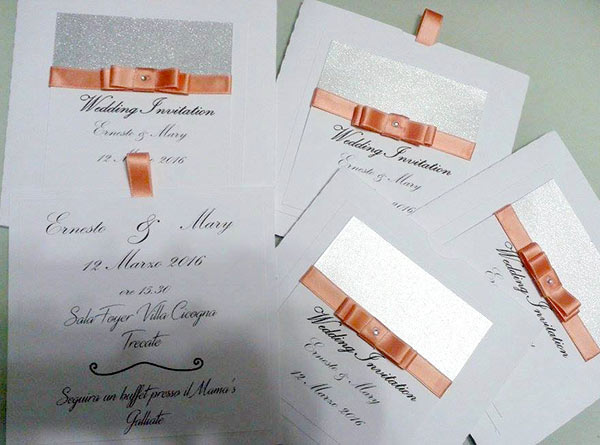 Wedding Invitation
Ernesto & Mary
12 Marzo 2016
Wedding Invitation
Ernesto & Mary
12 Marzo 2016
Ernesto & Mary
12 Marzo 2016
ore 15.30
Sala Foyer Villa Cicogna
Trecate
Seguira un buffet presso il Mama's
Galliate
Wedding Invitation
Ernesto & Mary
12 Marzo 2016
Wedding